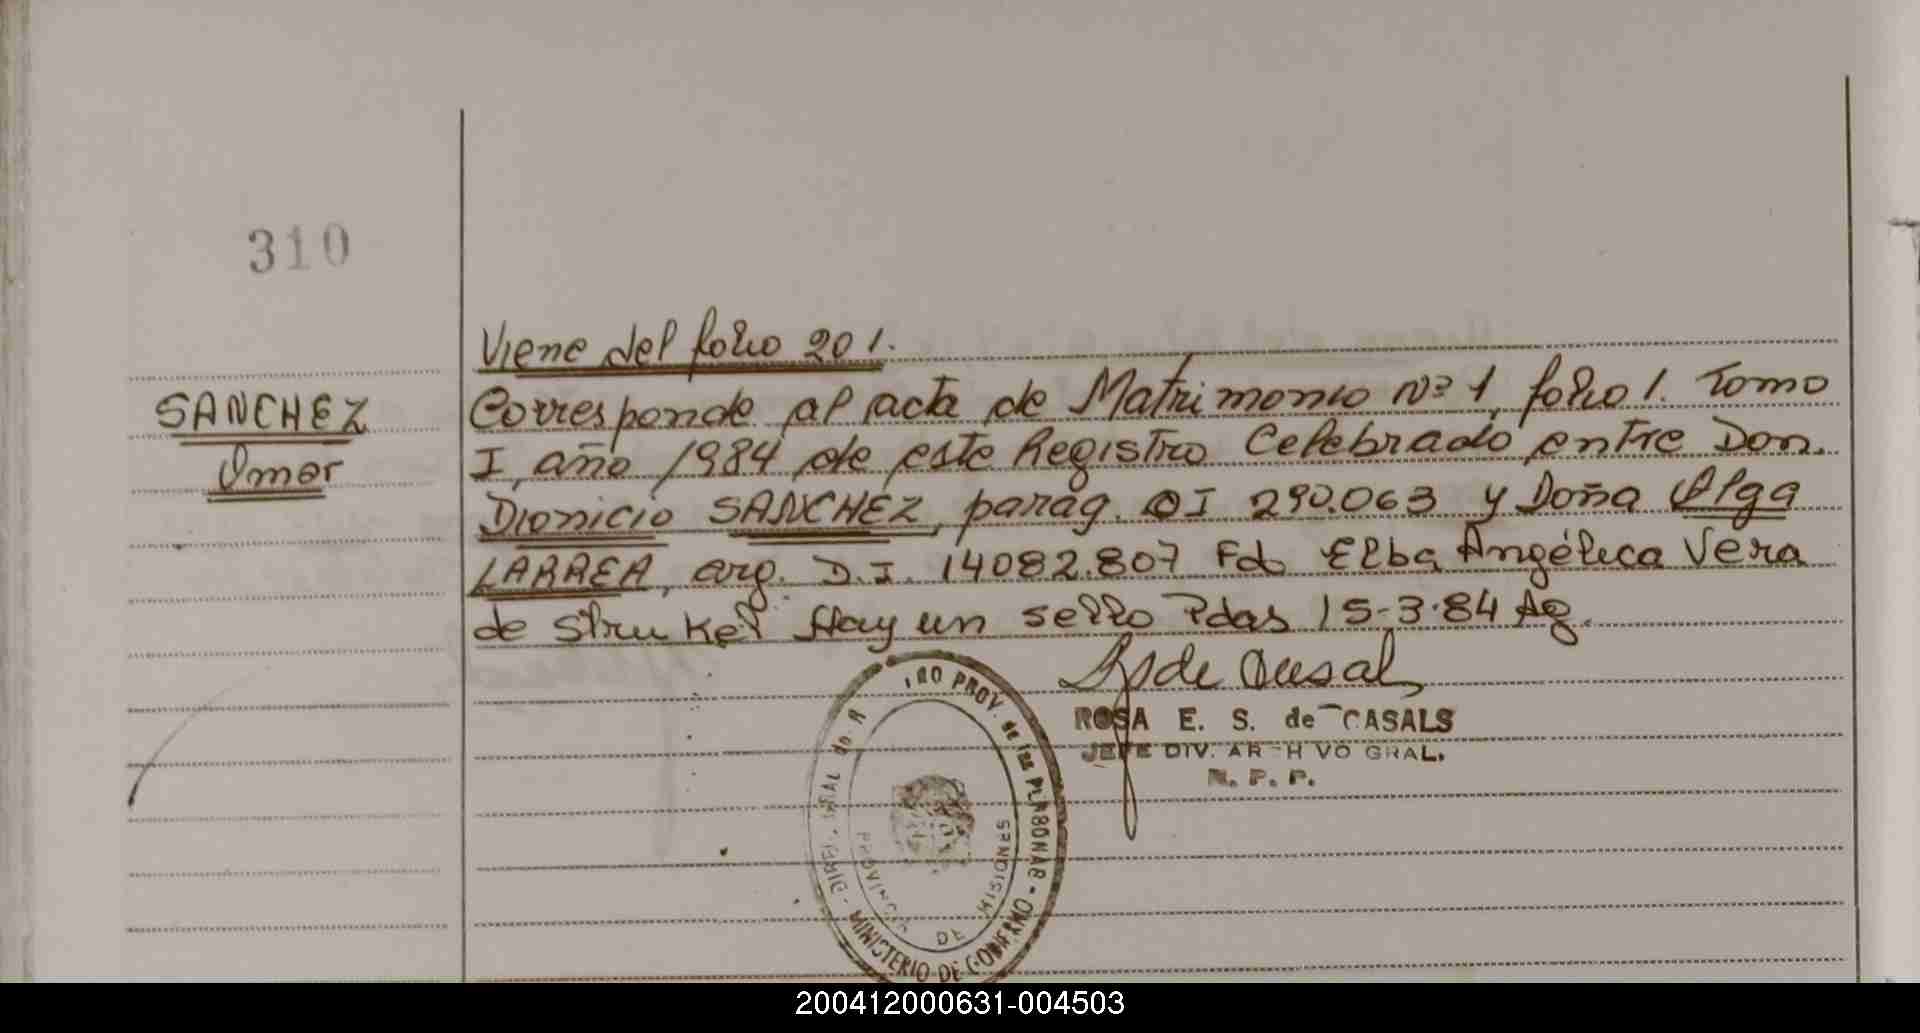 310
Viene del folio 201.
SANCHEZ
Omar
Corresponde al acta de Matrimonio Nº 1, folio 1. Tomo
I, año 1984 de este Registro Celebrado entre Don.
Dionicio SANCHEZ, parag. CI 290.063 y Doña Olga
LARREA, arg. D.I. 14082.807 Fdo Elba Angélica Vera
de Strukel Hay un sello Pdas 15-3-84 Ag.
ROSA E. S. de CASALS
JEFE DIV. ARCHIVO GRAL.
R. P. P.
PROV. de las PERSONAS - MINISTERIO DE GOBIERNO
PROVINCIA DE MISIONES
200412000631-004503